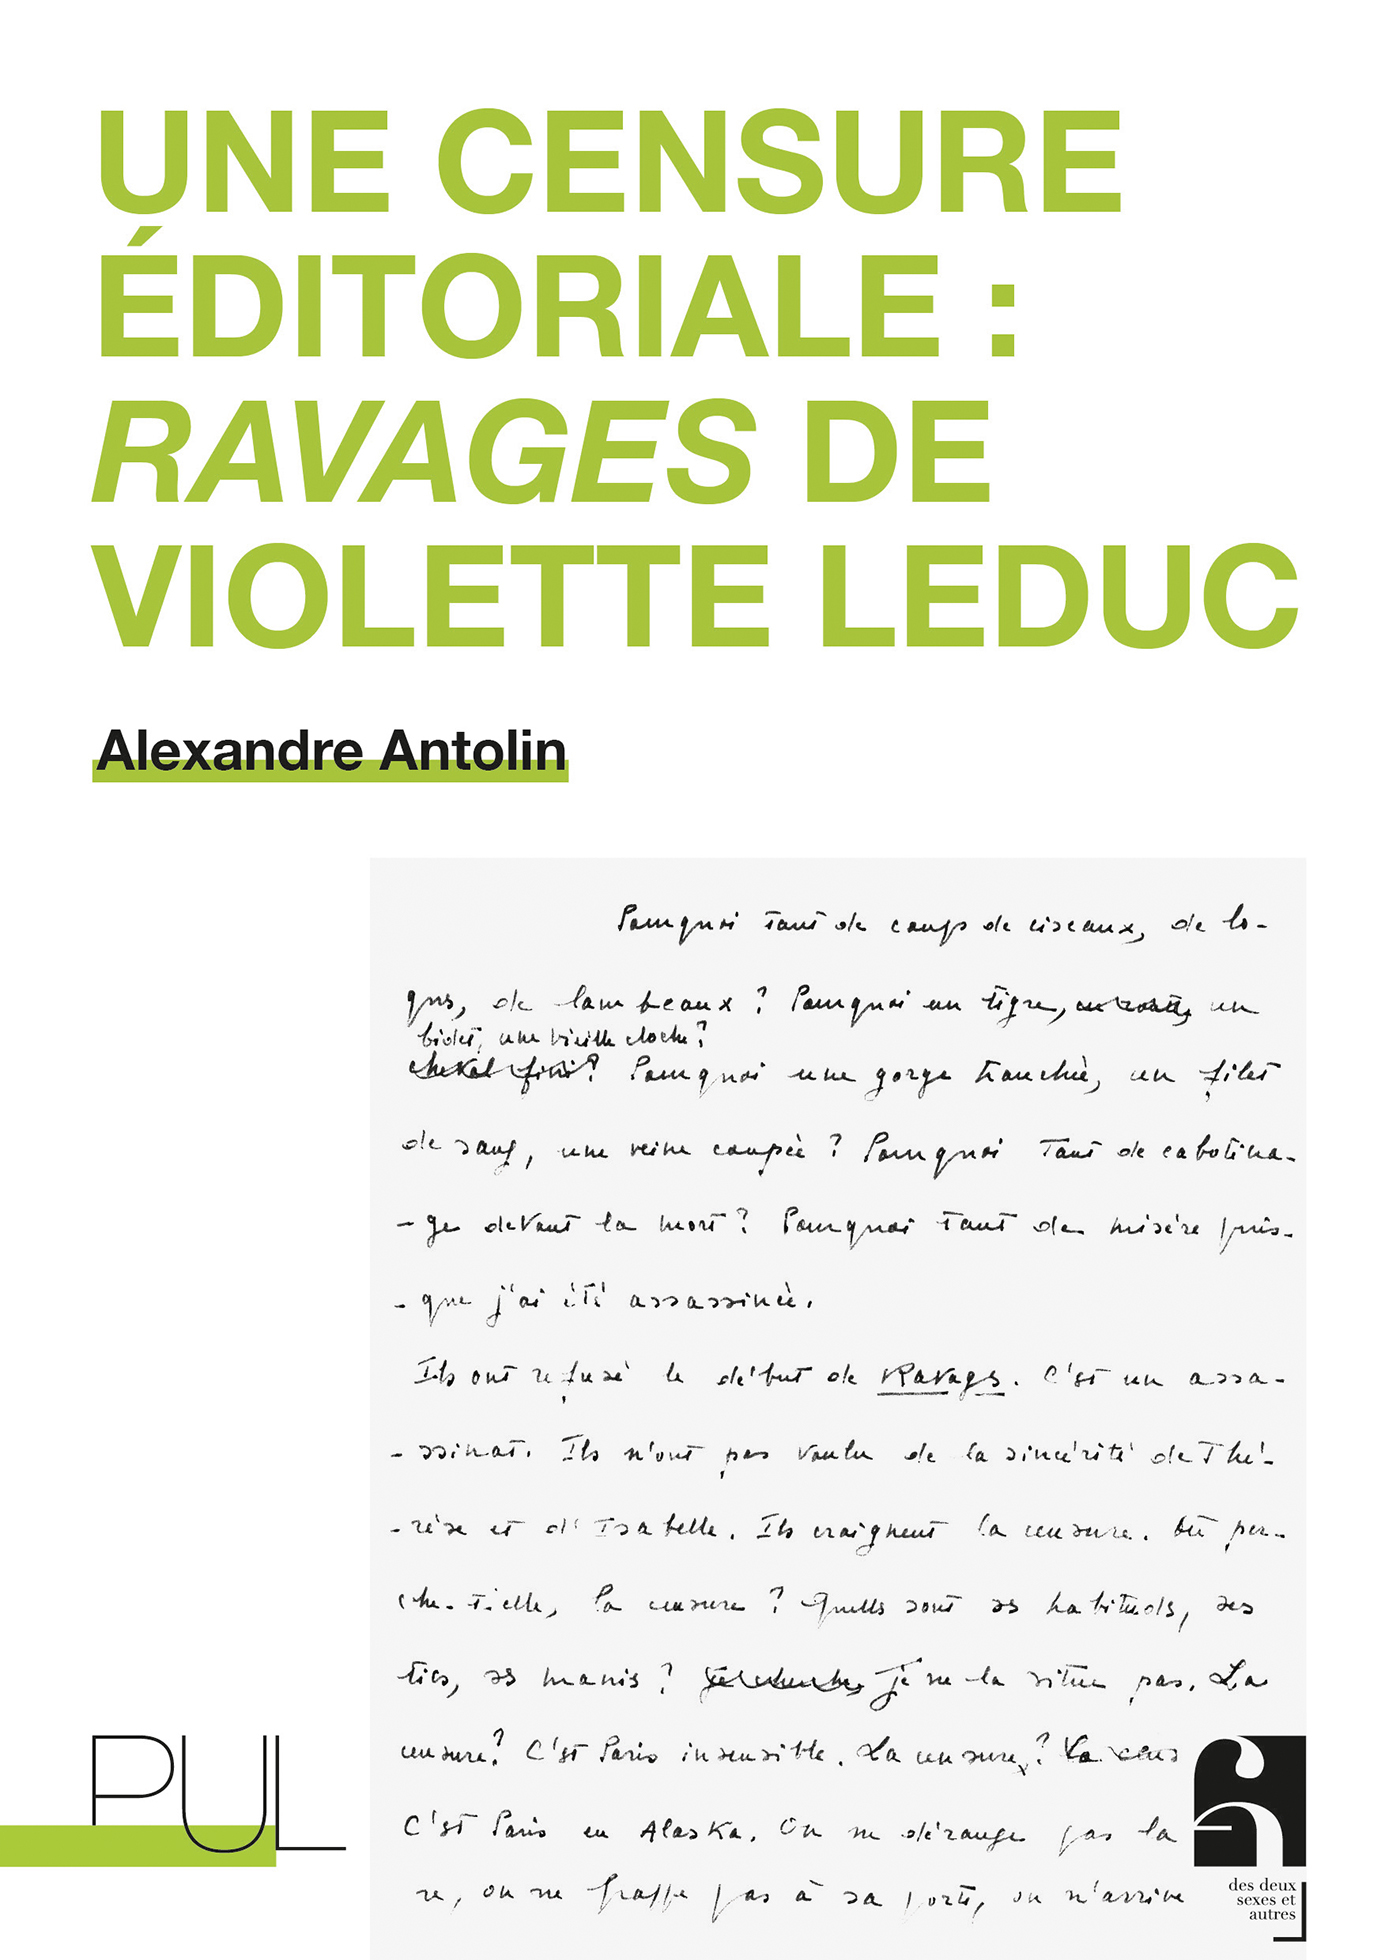 UNE CENSURE
ÉDITORIALE :
RAVAGES DE
VIOLETTE LEDUC
Alexandre Antolin
Pourquoi tant de coups de ciseaux, de lo-
ques, de lambeaux ? Pourquoi un tigre, un
bidet, une vieille cloche ?
cheval fini ? Pourquoi une gorge tranchée, un filet
de sang, une veine coupée ? Pourquoi tant de cabotina-
-ge devant la mort ? Pourquoi tant de misère puis-
-que j'ai été assassinée.
Ils ont refusé le début de Ravages. C'est un assa-
-ssinat. Ils n'ont pas voulu de la sincérité de Thé-
-rèse et d'Isabelle. Ils craignent la censure. Où per-
che-t-elle, la censure ? Quelles sont ses habitudes, ses
tics, ses manies ? Je ne la situe pas. La
censure ? C'est Paris insensible. La censure ? La cens
C'est Paris en Alaska. On ne dérange pas la
re, on ne frappe pas à sa porte, on n'arrive
PUL
des deux
sexes et
autres